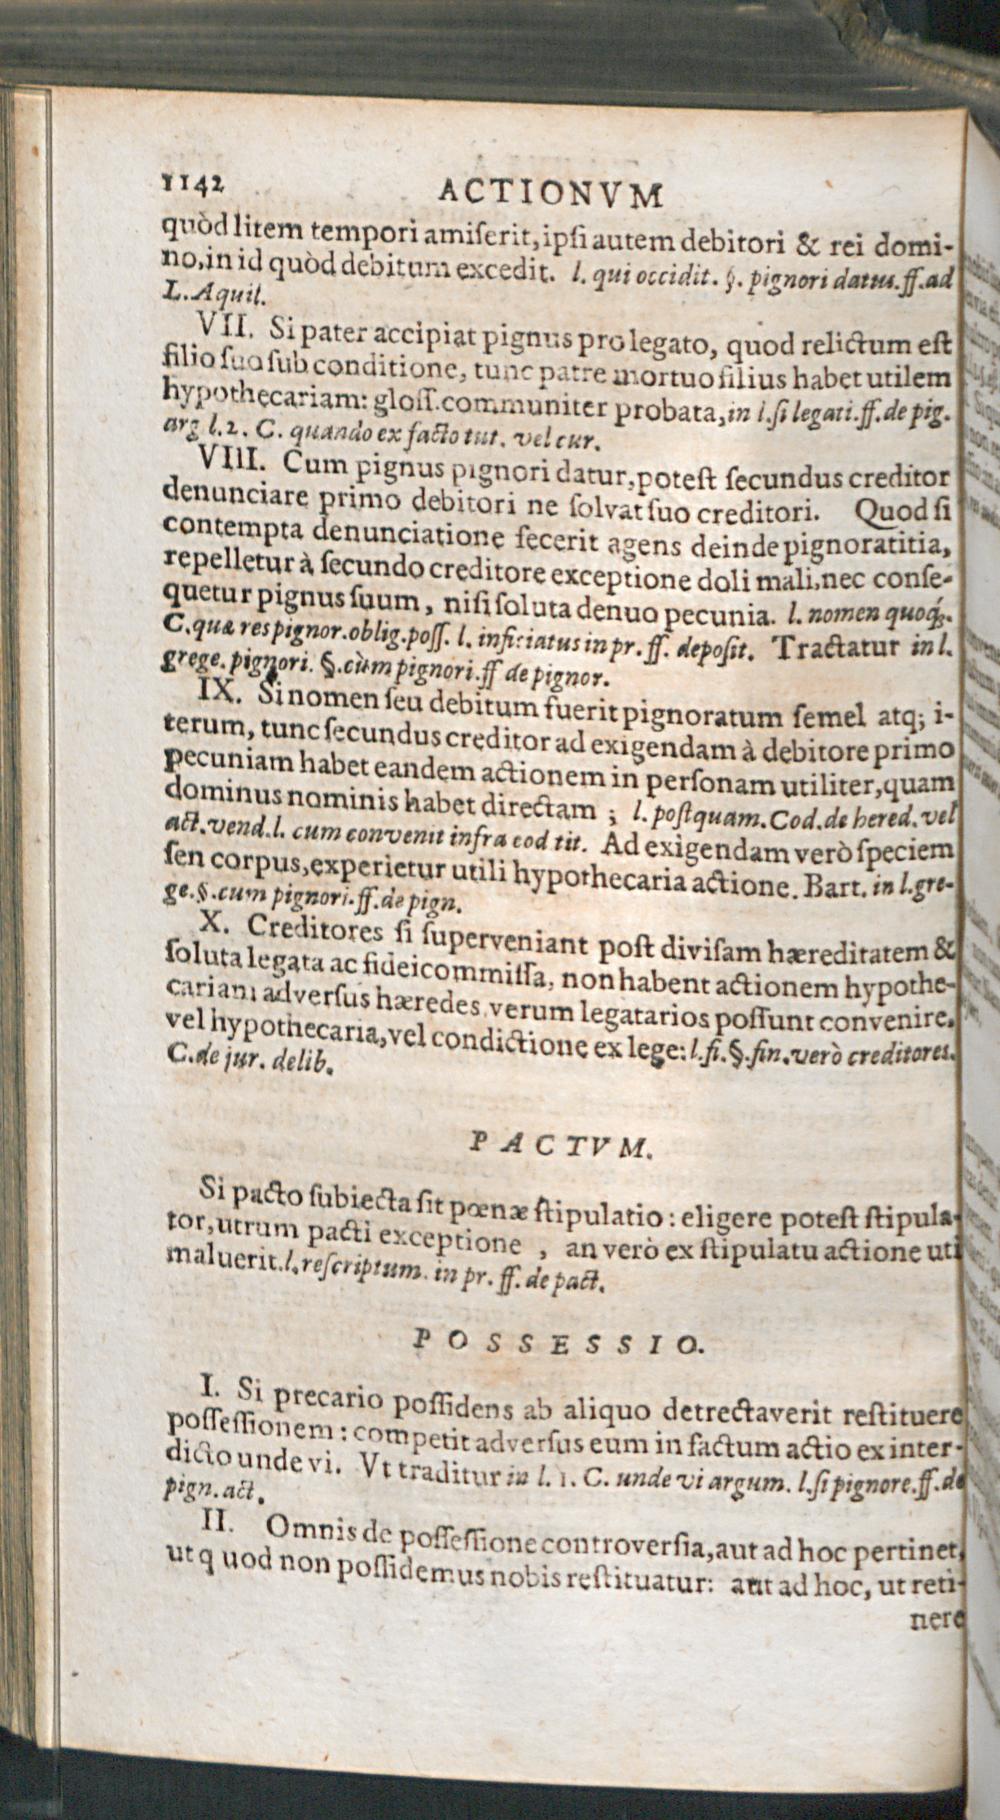 1142 ACTIONVM
quòd litem tempori amiſerit, ipſi autem debitori & rei domi-
no, in id quòd debitum excedit. l. qui occidit. §. pignori datus. ff. ad
L. Aquil.
VII. Si pater accipiat pignus pro legato, quod relictum eſt
filio ſuo ſub conditione, tunc patre mortuo filius habet utilem
hypothecariam: gloſſ. communiter probata, in l. ſi legati. ff. de pig.
arg l. 2. C. quando ex facto tut. vel cur.
VIII. Cum pignus pignori datur, poteſt ſecundus creditor
denunciare primo debitori ne ſolvat ſuo creditori. Quod ſi
contempta denunciatione fecerit agens deinde pignoratitia,
repelletur à ſecundo creditore exceptione doli mali, nec conſe-
quetur pignus ſuum, niſi ſoluta denuo pecunia. l. nomen quoq;.
C. quæ res pignor. oblig. poſſ. l. inficiatus in pr. ff. depoſit. Tractatur in l.
grege. pignori. §. cùm pignori. ff de pignor.
IX. Si nomen ſeu debitum fuerit pignoratum ſemel atq; i-
terum, tunc ſecundus creditor ad exigendam à debitore primo
pecuniam habet eandem actionem in perſonam utiliter, quam
dominus nominis habet directam ; l. poſtquam. Cod. de hered. vel
act. vend. l. cum convenit infra eod tit. Ad exigendam verò ſpeciem
ſen corpus, experietur utili hypothecaria actione. Bart. in l. gre-
ge. §. cum pignori. ff. de pign.
X. Creditores ſi ſuperveniant poſt diviſam hæreditatem &
ſoluta legata ac fideicommiſſa, non habent actionem hypothe-
cariam adverſus hæredes, verum legatarios poſſunt convenire,
vel hypothecaria, vel condictione ex lege: l. fi. §. fin. verò creditores.
C. de jur. delib.
PACTVM.
Si pacto ſubiecta ſit pœnæ ſtipulatio : eligere poteſt ſtipula-
tor, utrum pacti exceptione , an verò ex ſtipulatu actione uti
maluerit. l. reſcriptum. in pr. ff. de pact.
POSSESSIO.
I. Si precario poſſidens ab aliquo detrectaverit reſtituere
poſſeſſionem : competit adverſus eum in factum actio ex inter-
dicto unde vi. Vt traditur in l. 1. C. unde vi argum. l. ſi pignore. ff. de
pign. act.
II. Omnis de poſſeſſione controverſia, aut ad hoc pertinet,
ut q uod non poſſidemus nobis reſtituatur: aut ad hoc, ut reti-
nere